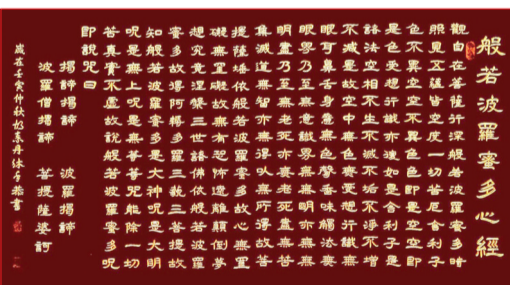 般若波羅蜜多心經
觀自在菩薩行深般若波羅蜜多時
照見五蘊皆空度一切苦厄舍利子
色不異空空不異色色即是空空即
是色受想行識亦復如是舍利子是
諸法空相不生不滅不垢不淨不增
不減是故空中無色無受想行識無
眼耳鼻舌身意無色聲香味觸法無
眼界乃至無意識界無無明亦無無
明盡乃至無老死亦無老死盡無苦
集滅道無智亦無得以無所得故菩
提薩埵依般若波羅蜜多故心無罣
礙無罣礙故無有恐怖遠離顛倒夢
想究竟涅槃三世諸佛依般若波羅
蜜多故得阿耨多羅三藐三菩提故
知般若波羅蜜多是大神咒是大明
咒是無上咒是無等等咒能除一切
苦真實不虛故說般若波羅蜜多咒
即說咒曰
揭諦揭諦 波羅揭諦
波羅僧揭諦 菩提薩婆訶
歲在壬寅仲秋 書